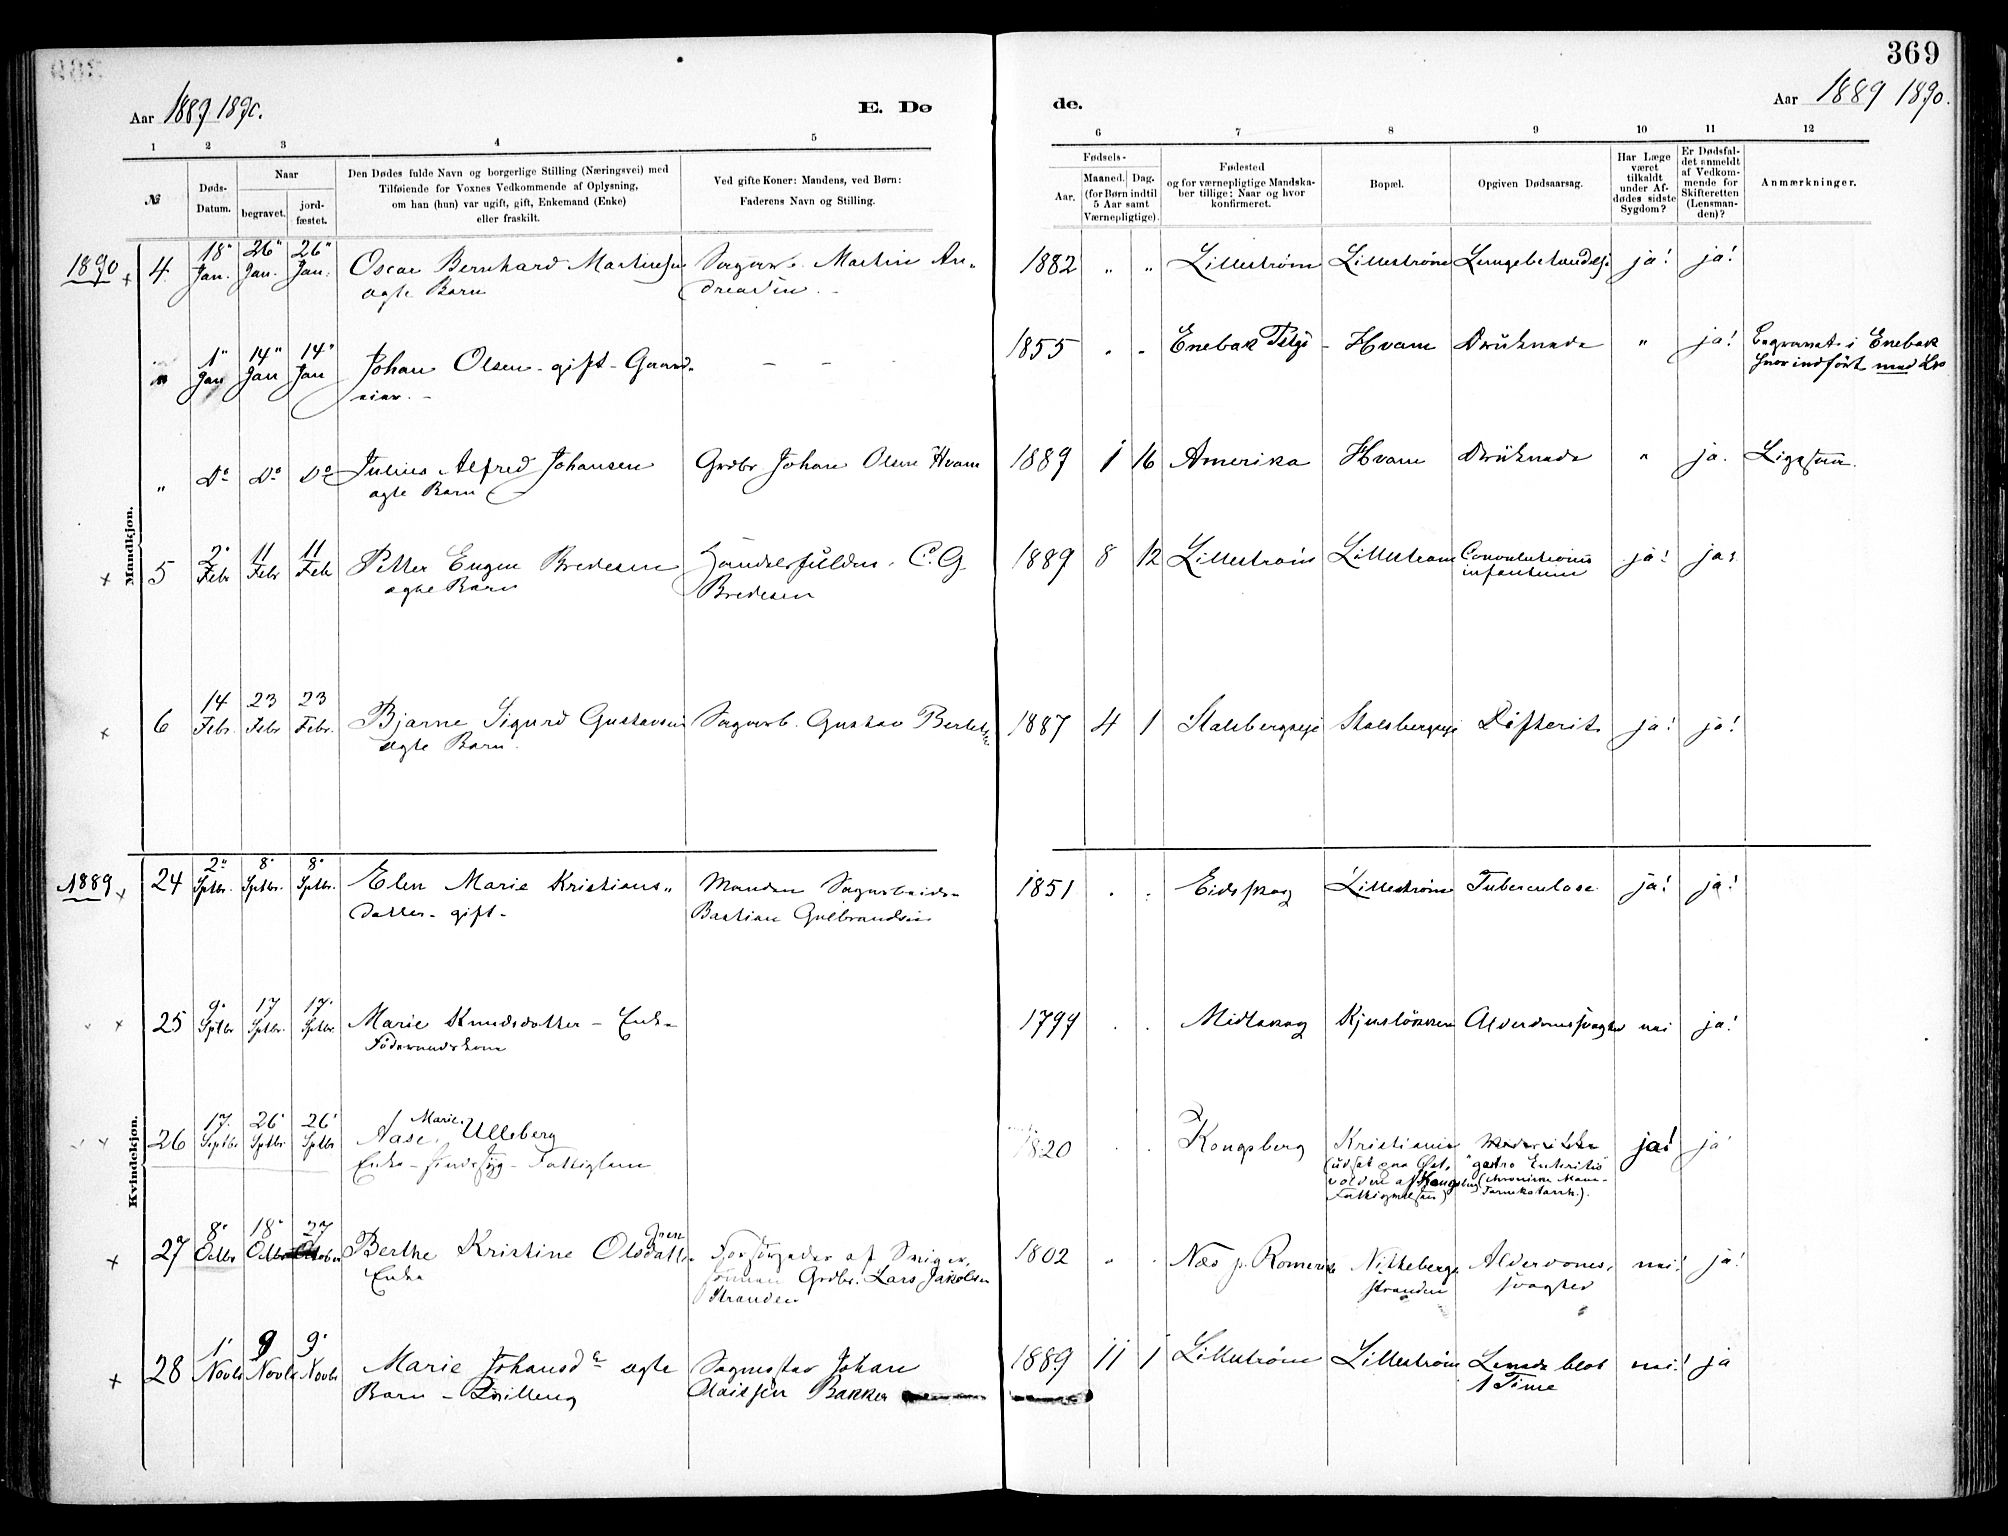 369
Aar 1889 1890.
E. Dø
de.
Aar 1889 1890.
1 2 3 4 5 6 7 8 9 10 11 12
№
Døds-Datum.
Naar
begravet.
jord-fæstet.
Den Dødes fulde Navn og borgerlige Stilling (Næringsvei) med
Tilføiende for Voxnes Vedkommende af Oplysning,
om han (hun) var ugift, gift, Enkemand (Enke)
eller fraskilt.
Ved gifte Koner: Mandens, ved Børn:
Faderens Navn og Stilling.
Fødsels-
Aar.
Maaned. Dag.
(for Børn indtil
5 Aar samt
Værnepligtige).
Fødested
og for værnepligtige Mandska-
ber tillige: Naar og hvor
konfirmeret.
Bopæl.
Opgiven Dødsaarsag.
Har Læge
været
tilkaldt
under Af-
dødes sidste
Sygdom?
Er Dødsfal-
det anmeldt
af Vedkom-
mende for
Skifteretten
(Lensman-
den)?
Anmærkninger.
Mandkjøn.
1890 4 18 Jan. 26 Jan. 26 Jan. Oscar Bernhard Martinsen Sagarb. Martin An- 1882 " " Lillestrøm Lillestrøm ja! ja!
ægte Barn
" 1 Jan 14 Jan 14 Jan Johan Olsen - gift - Gaard- – – 1855 " " Enebak Hvam Druknede " ja! Begravet i Enebak
eier. - hvor indført med
" Do Do Do Julius Alfred Johansen Grdbr Johan Olsen Hvam 1889 1 16 Amerika Hvam Druknede " ja.
ægte Barn
5 2 Febr 11 Febr 11 Feb Petter Eugen Bredesen C. G 1889 8 12 Lillestrøm Lillestrøm ja! ja!
ægte Barn Bredesen infantum
6 14 Febr. 23 Febr 23 Febr. Bjarne Sigurd Gustavsen Sagarb. Gustav 1887 4 1 Stalsbergeje Stalsbergeje Difterit ja! ja!
ægte Barn.
Kvindekjøn.
1889 24 2 Sptbr. 8 Sptbr. 8 Sptbr. Elen Marie Kristians- Manden Sagarbeider 1851 " " Eidsskog Lillestrøm Tuberculose ja! ja!
datter - gift - Bastian Gulbrandsen
25 9 Sptbr 17 Sptbr. 17 Sptbr. Marie Knudsdatter - Enke 1799 " " Midtskog Alderdomssvaghed nei ja!
Føderaadskone
26 17. Septbr 26 Sptbr 26 Sptbr Aase Marie Ulleberg 1820 " " Kongsberg Kristiania gastro Enteritis ja! ja
Enke - sindssyg - Fattiglem (udsat paa Øst- (chronisk Mave-
volden af Kongsberg Tarmkatarrh.).
27 8 Octbr 18 Octbr 27 October Berthe Kristine Olsdatter Forsørgedes af Sviger- 1802 " " Næs p. Romerike Nitteberg- Alderdoms- nei! ja!
Enke sønnen Grdbr. Lars Jakobsen stranden svaghed
Stranden
28 1 Novbr 9 Novbr 9 Novbr Marie Johansd ægte Sagmester Johan 1889 11 1 Lillestrøm Lillestrøm Levede blot nei! ja
Barn - Tvilling Bakken 1 Time